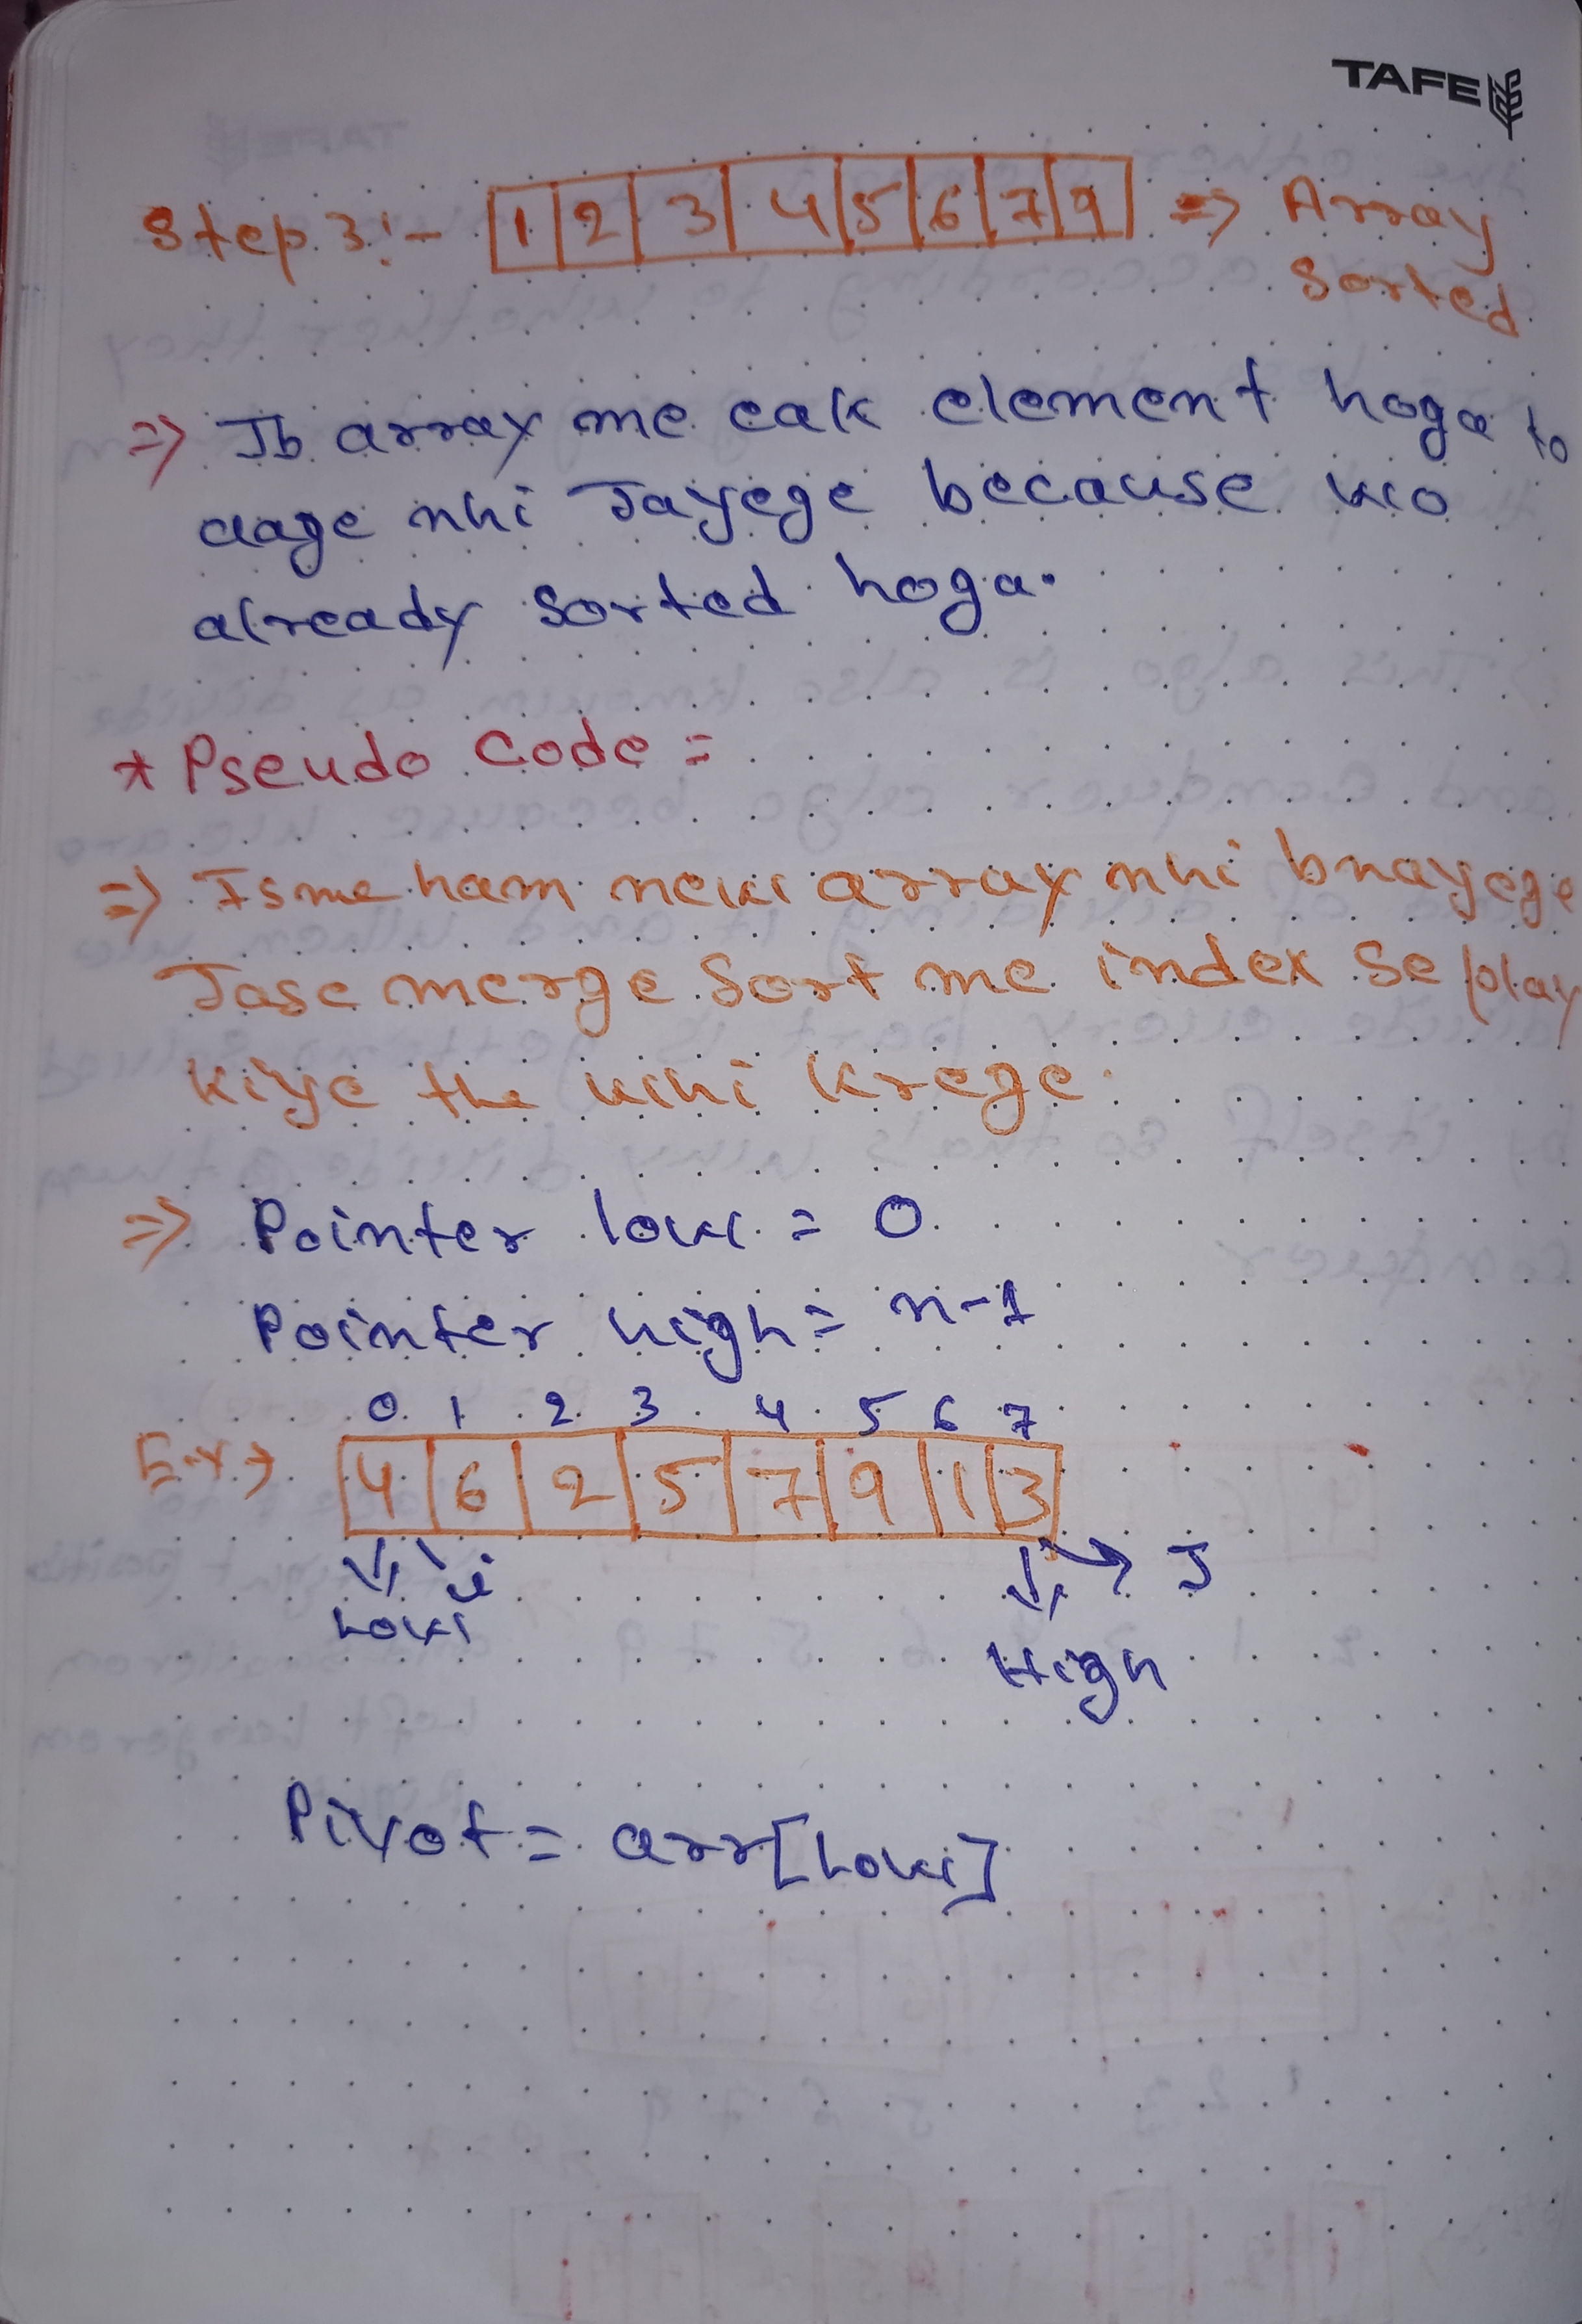 TAFE
Step 3:- 1 2 3 4 5 6 7 9 => Array
Sorted
=> Jb array me eak element hoga to
aage nhi Jayege because wo
already sorted hoga.
* Pseudo Code =
=> Isme ham new array nhi bnayege
Jase merge Sort me index se play
kiye the whi krege.
=> Pointer low = 0
Pointer high = n-1
0 1 2 3 4 5 6 7
Ex→ 4 6 2 5 7 9 1 3
i → J
Low
High
Pivot = arr[Low]